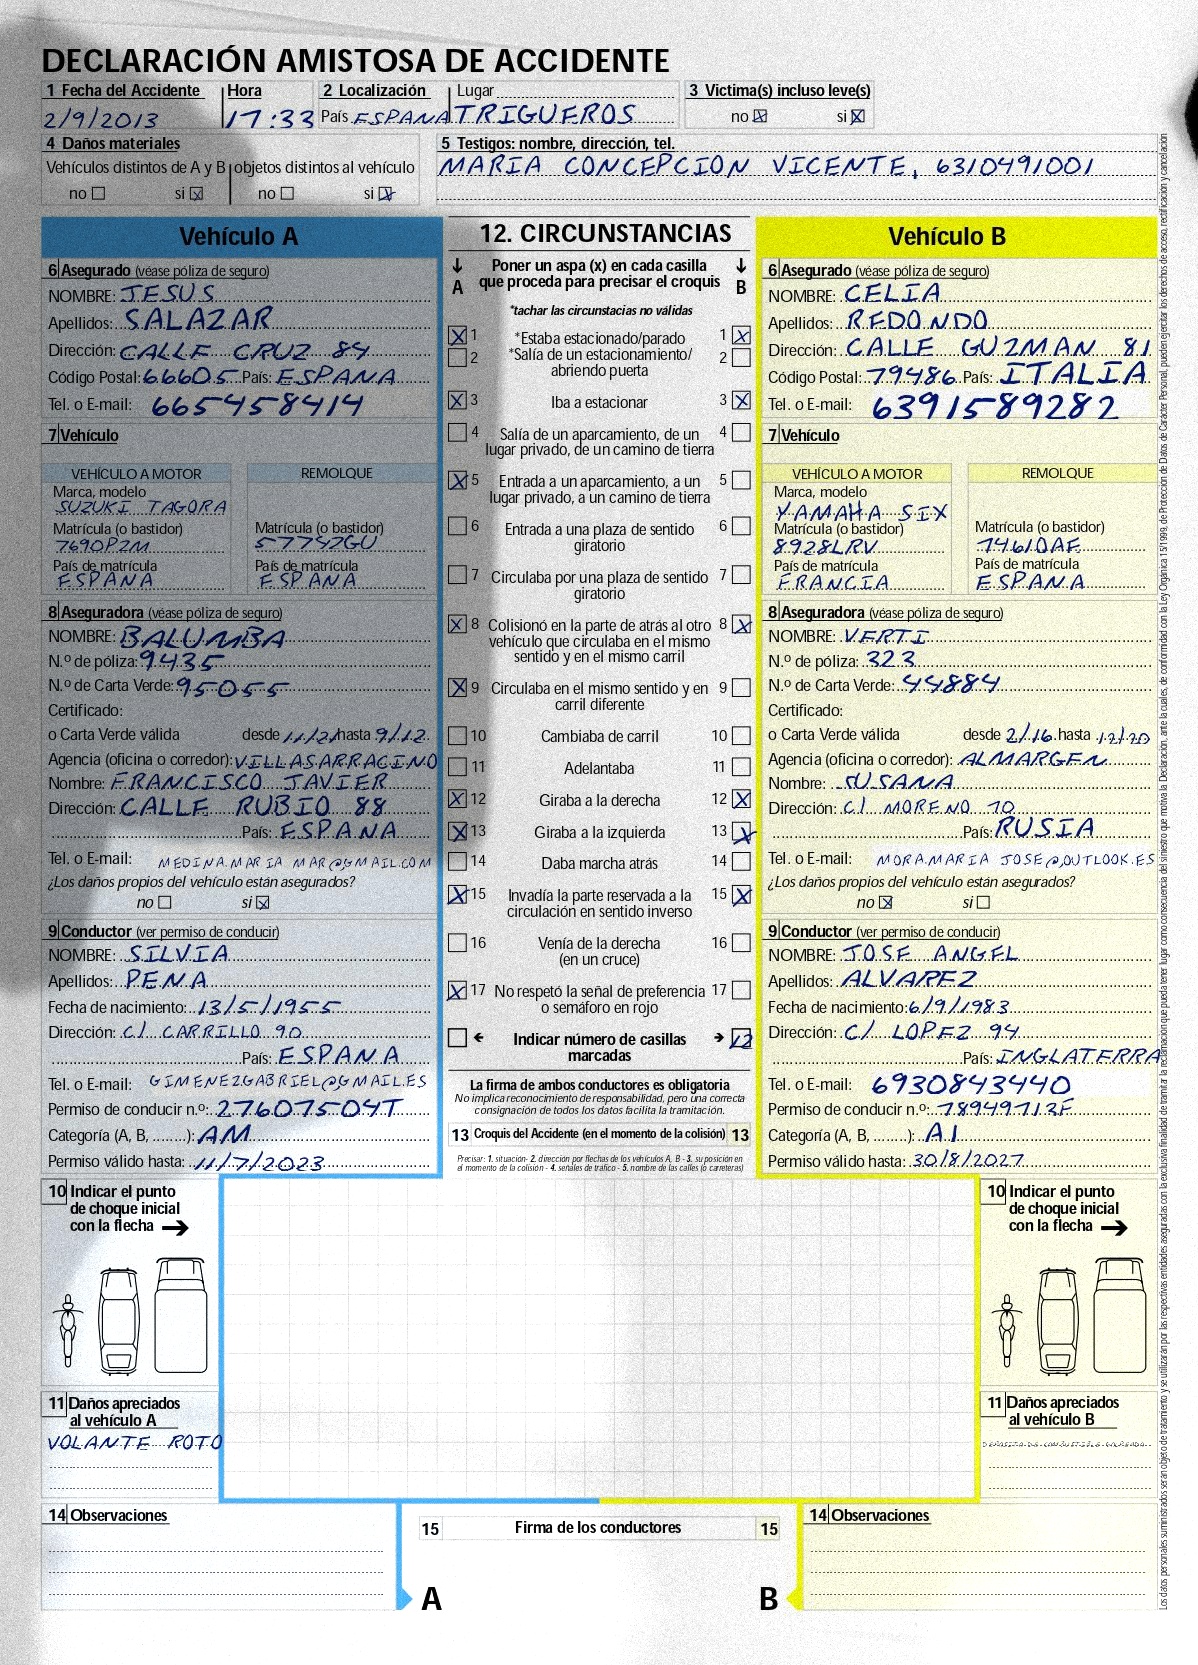 DECLARACIÓN AMISTOSA DE ACCIDENTE
1 Fecha del Accidente Hora 2 Localización Lugar 3 Victima(s) incluso leve(s)
2/9/2013 17:33 País ESPANA TRIGUEROS no si
4 Daños materiales
Vehículos distintos de A y B objetos distintos al vehículo
no si no si
5 Testigos: nombre, dirección, tel.
MARIA CONCEPCION VICENTE, 6310491001
Vehículo A
6 Asegurado (véase póliza de seguro)
NOMBRE: JESUS
Apellidos: SALAZAR
Dirección: CALLE CRUZ 84
Código Postal: 66605 País: ESPANA
Tel. o E-mail: 665458414
7 Vehículo
VEHÍCULO A MOTOR REMOLQUE
Marca, modelo
SUZUKI TAGORA
Matrícula (o bastidor) Matrícula (o bastidor)
7690PZM 57752GU
País de matrícula País de matrícula
ESPANA ESPANA
8 Aseguradora (véase póliza de seguro)
NOMBRE: BALUMBA
N.º de póliza: 9435
N.º de Carta Verde: 95055
Certificado:
o Carta Verde válida desde 11/21 hasta 9/12
Agencia (oficina o corredor): VILLASARRACINO
Nombre: FRANCISCO JAVIER
Dirección: CALLE RUBIO 88
País: ESPANA
Tel. o E-mail: MEDINA.MARIA MAR@GMAIL.COM
¿Los daños propios del vehículo están asegurados?
no si
9 Conductor (ver permiso de conducir)
NOMBRE: SILVIA
Apellidos: PENA
Fecha de nacimiento: 13/5/1955
Dirección: C/ CARRILLO 90
País: ESPANA
Tel. o E-mail: GIMENEZGABRIEL@GMAIL.ES
Permiso de conducir n.º: 27607504T
Categoría (A, B, ........): AM
Permiso válido hasta: 11/7/2023
12. CIRCUNSTANCIAS
A Poner un aspa (x) en cada casilla que proceda para precisar el croquis B
*tachar las circunstacias no válidas
1 *Estaba estacionado/parado 1
2 *Salía de un estacionamiento/ 2
abriendo puerta
3 Iba a estacionar 3
4 Salía de un aparcamiento, de un 4
lugar privado, de un camino de tierra
5 Entrada a un aparcamiento, a un 5
lugar privado, a un camino de tierra
6 Entrada a una plaza de sentido 6
giratorio
7 Circulaba por una plaza de sentido 7
giratorio
8 Colisionó en la parte de atrás al otro 8
vehículo que circulaba en el mismo
sentido y en el mismo carril
9 Circulaba en el mismo sentido y en 9
carril diferente
10 Cambiaba de carril 10
11 Adelantaba 11
12 Giraba a la derecha 12
13 Giraba a la izquierda 13
14 Daba marcha atrás 14
15 Invadía la parte reservada a la 15
circulación en sentido inverso
16 Venía de la derecha 16
(en un cruce)
17 No respetó la señal de preferencia 17
o semáforo en rojo
Indicar número de casillas 12
marcadas
La firma de ambos conductores es obligatoria
No implica reconocimiento de responsabilidad, pero una correcta
consignación de todos los datos facilita la tramitación.
13 Croquis del Accidente (en el momento de la colisión) 13
Precisar: 1. situación- 2. dirección por flechas de los vehículos A, B - 3. su posición en
el momento de la colisión - 4. señales de tráfico - 5. nombre de las calles (o carreteras)
Vehículo B
6 Asegurado (véase póliza de seguro)
NOMBRE: CELIA
Apellidos: REDONDO
Dirección: CALLE GUZMAN 81
Código Postal: 79486 País: ITALIA
Tel. o E-mail: 6391589282
7 Vehículo
VEHÍCULO A MOTOR REMOLQUE
Marca, modelo
YAMAHA SIX
Matrícula (o bastidor) Matrícula (o bastidor)
8928LRV 7461DAE
País de matrícula País de matrícula
FRANCIA ESPANA
8 Aseguradora (véase póliza de seguro)
NOMBRE: VERTI
N.º de póliza: 323
N.º de Carta Verde: 44884
Certificado:
o Carta Verde válida desde 2/16 hasta 12/20
Agencia (oficina o corredor): ALMARGEN
Nombre: SUSANA
Dirección: C/ MORENO 70
País: RUSIA
Tel. o E-mail: MORA.MARIA JOSE@OUTLOOK.ES
¿Los daños propios del vehículo están asegurados?
no si
9 Conductor (ver permiso de conducir)
NOMBRE: JOSE ANGEL
Apellidos: ALVAREZ
Fecha de nacimiento: 6/9/1983
Dirección: C/ LOPEZ 94
País: INGLATERRA
Tel. o E-mail: 6930843440
Permiso de conducir n.º: 78949713F
Categoría (A, B, ........): A1
Permiso válido hasta: 30/8/2027
10 Indicar el punto
de choque inicial
con la flecha
11 Daños apreciados
al vehículo A
VOLANTE ROTO
10 Indicar el punto
de choque inicial
con la flecha
11 Daños apreciados
al vehículo B
14 Observaciones
15 Firma de los conductores 15
A B
14 Observaciones